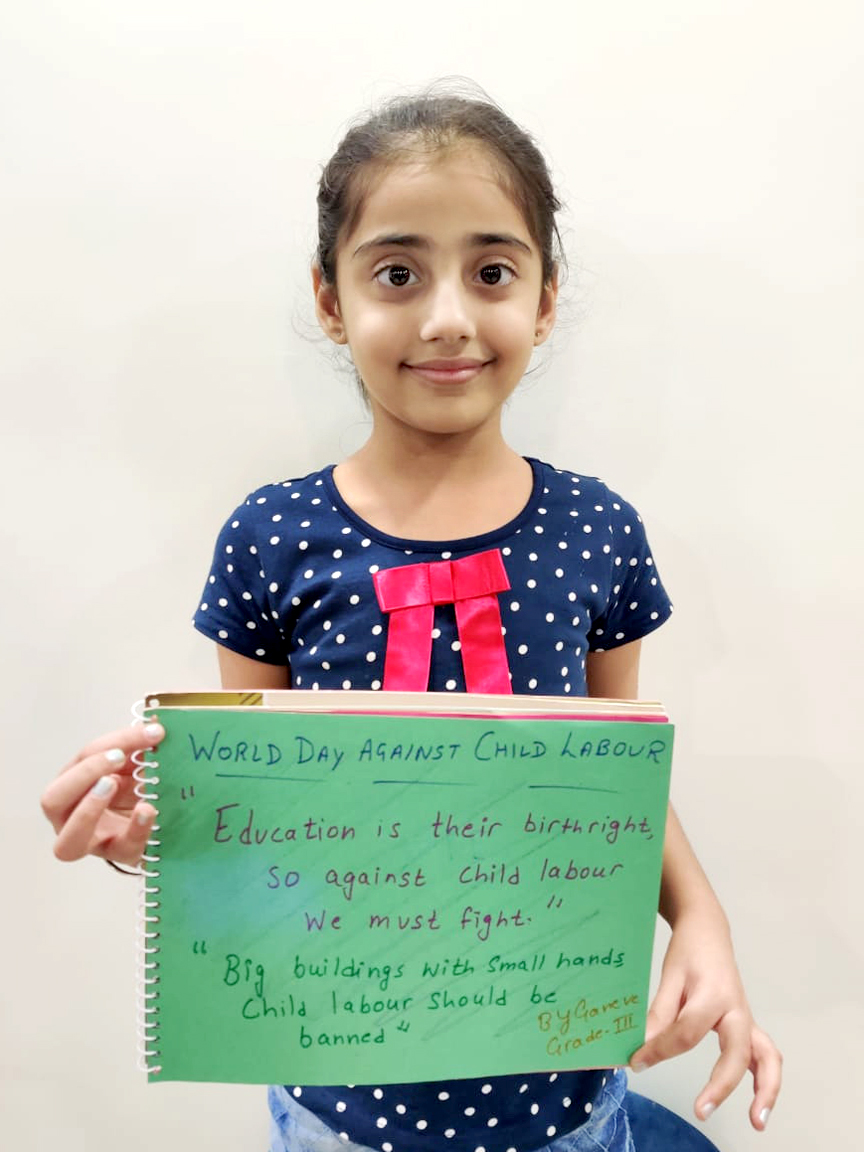 WORLD DAY AGAINST CHILD LABOUR
" Education is their birthright,
so against child labour
We must fight. "
" Big buildings with small hands
Child labour should be
banned "
By
Grade-III